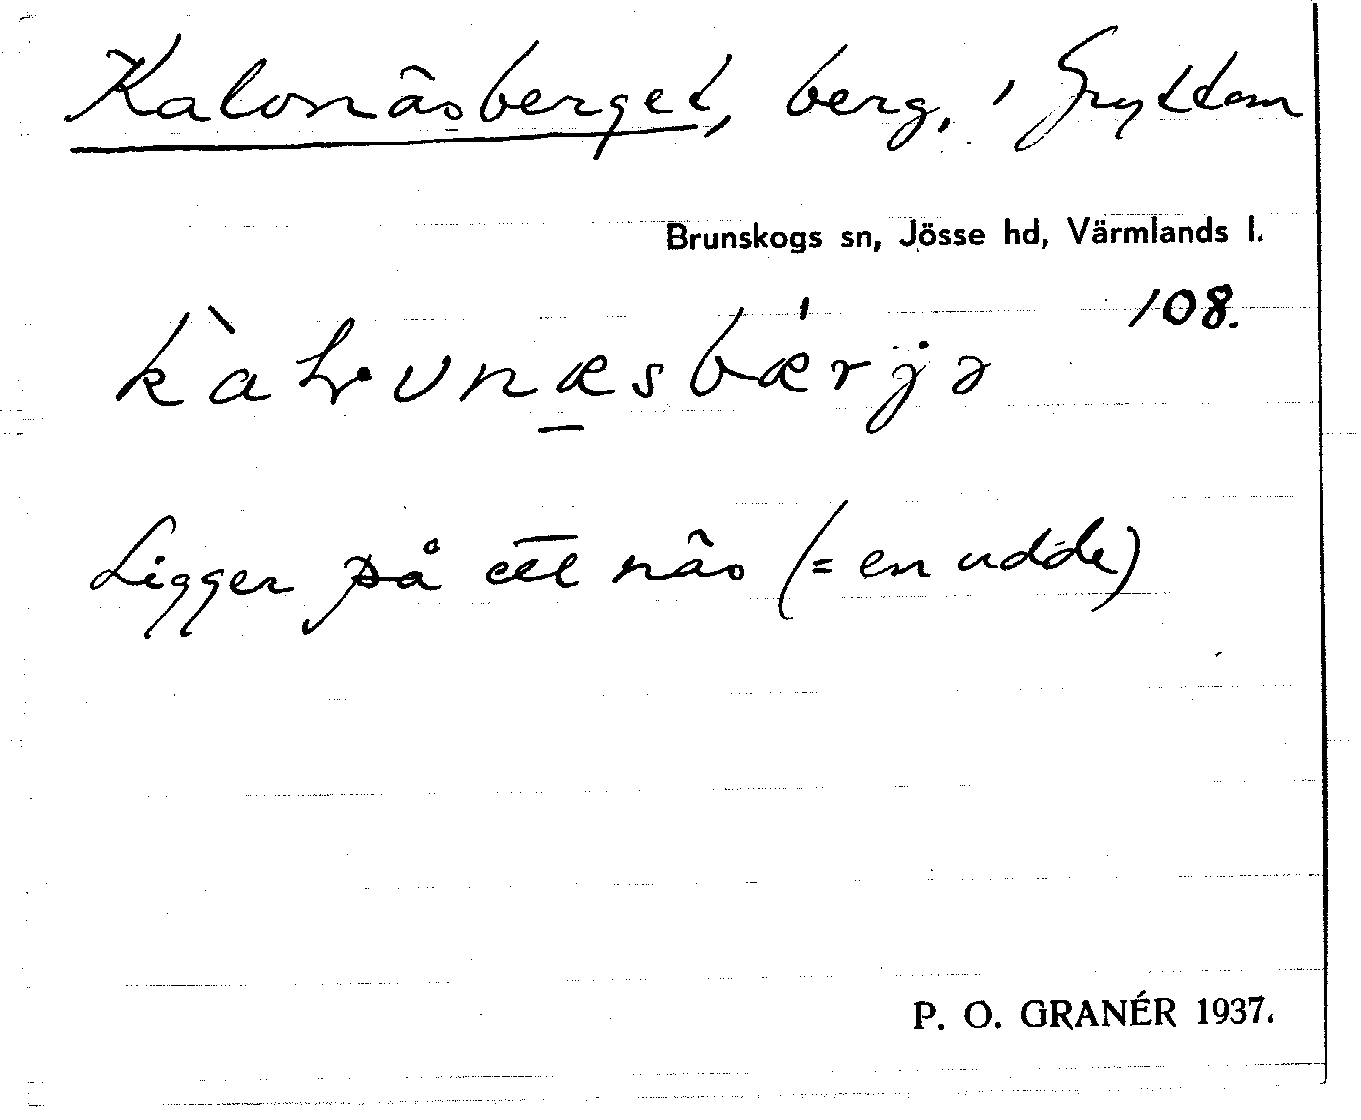 Kalvnäsberget, berg, i Gryttom
Brunskogs sn, Jösse hd, Värmlands l.
108.
Ligger på ett näs (= en udde)
P. O. GRANÉR 1937.